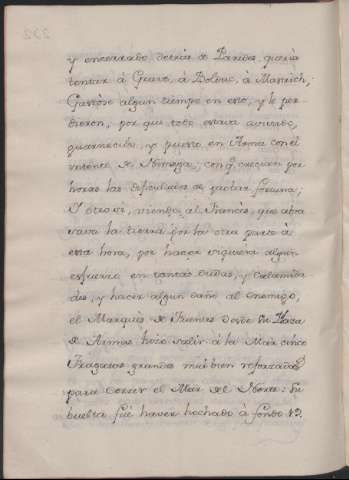 y encerrado detrás de Paredes, quería
tentar á Grave, á Bolduc, á Mastrich;
Gastóse algun tiempo en esto, y le per
dieron, por que todo estava avisado,
guarnecido, y puesto en Arma con el
intento de Nimega; con q. crecian por
horas las dificultades de tentar fortuna;
Y otro si, viendo, al Francés, que abra
sava la tierra por la otra parte á
esta hora, por hacer siquiera algun
esfuerzo en tantas dudas, y calamida
des, y hacer algun daño al enemigo,
el Marqués de Fuentes desde su Plaza
de Armas hizo salir á la Mar cinco
Fragatas grandes mui bien reforzadas
para correr el Mar del Norte: su
buelta fué haver hechado á fondo 12.